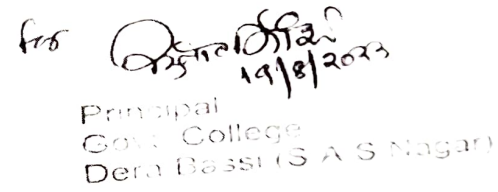 for
19/8/2022
Principal
Govt College
Dera Bassi (S A S Nagar)